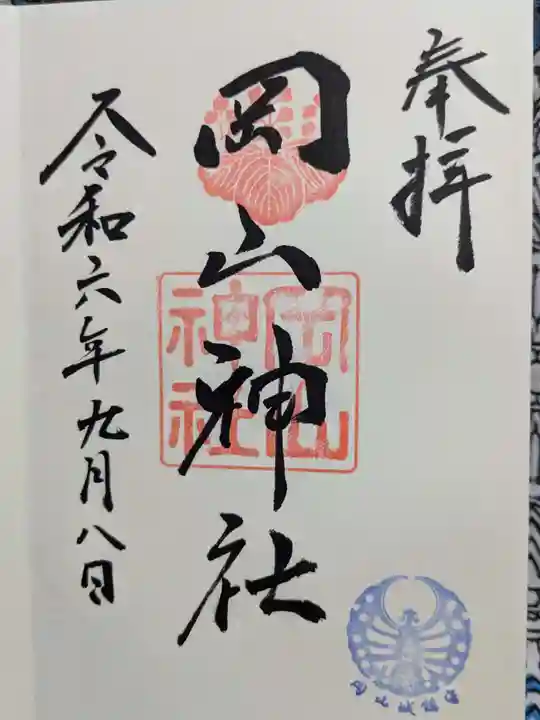 奉拝
岡山神社
岡山
神社
令和六年九月八日